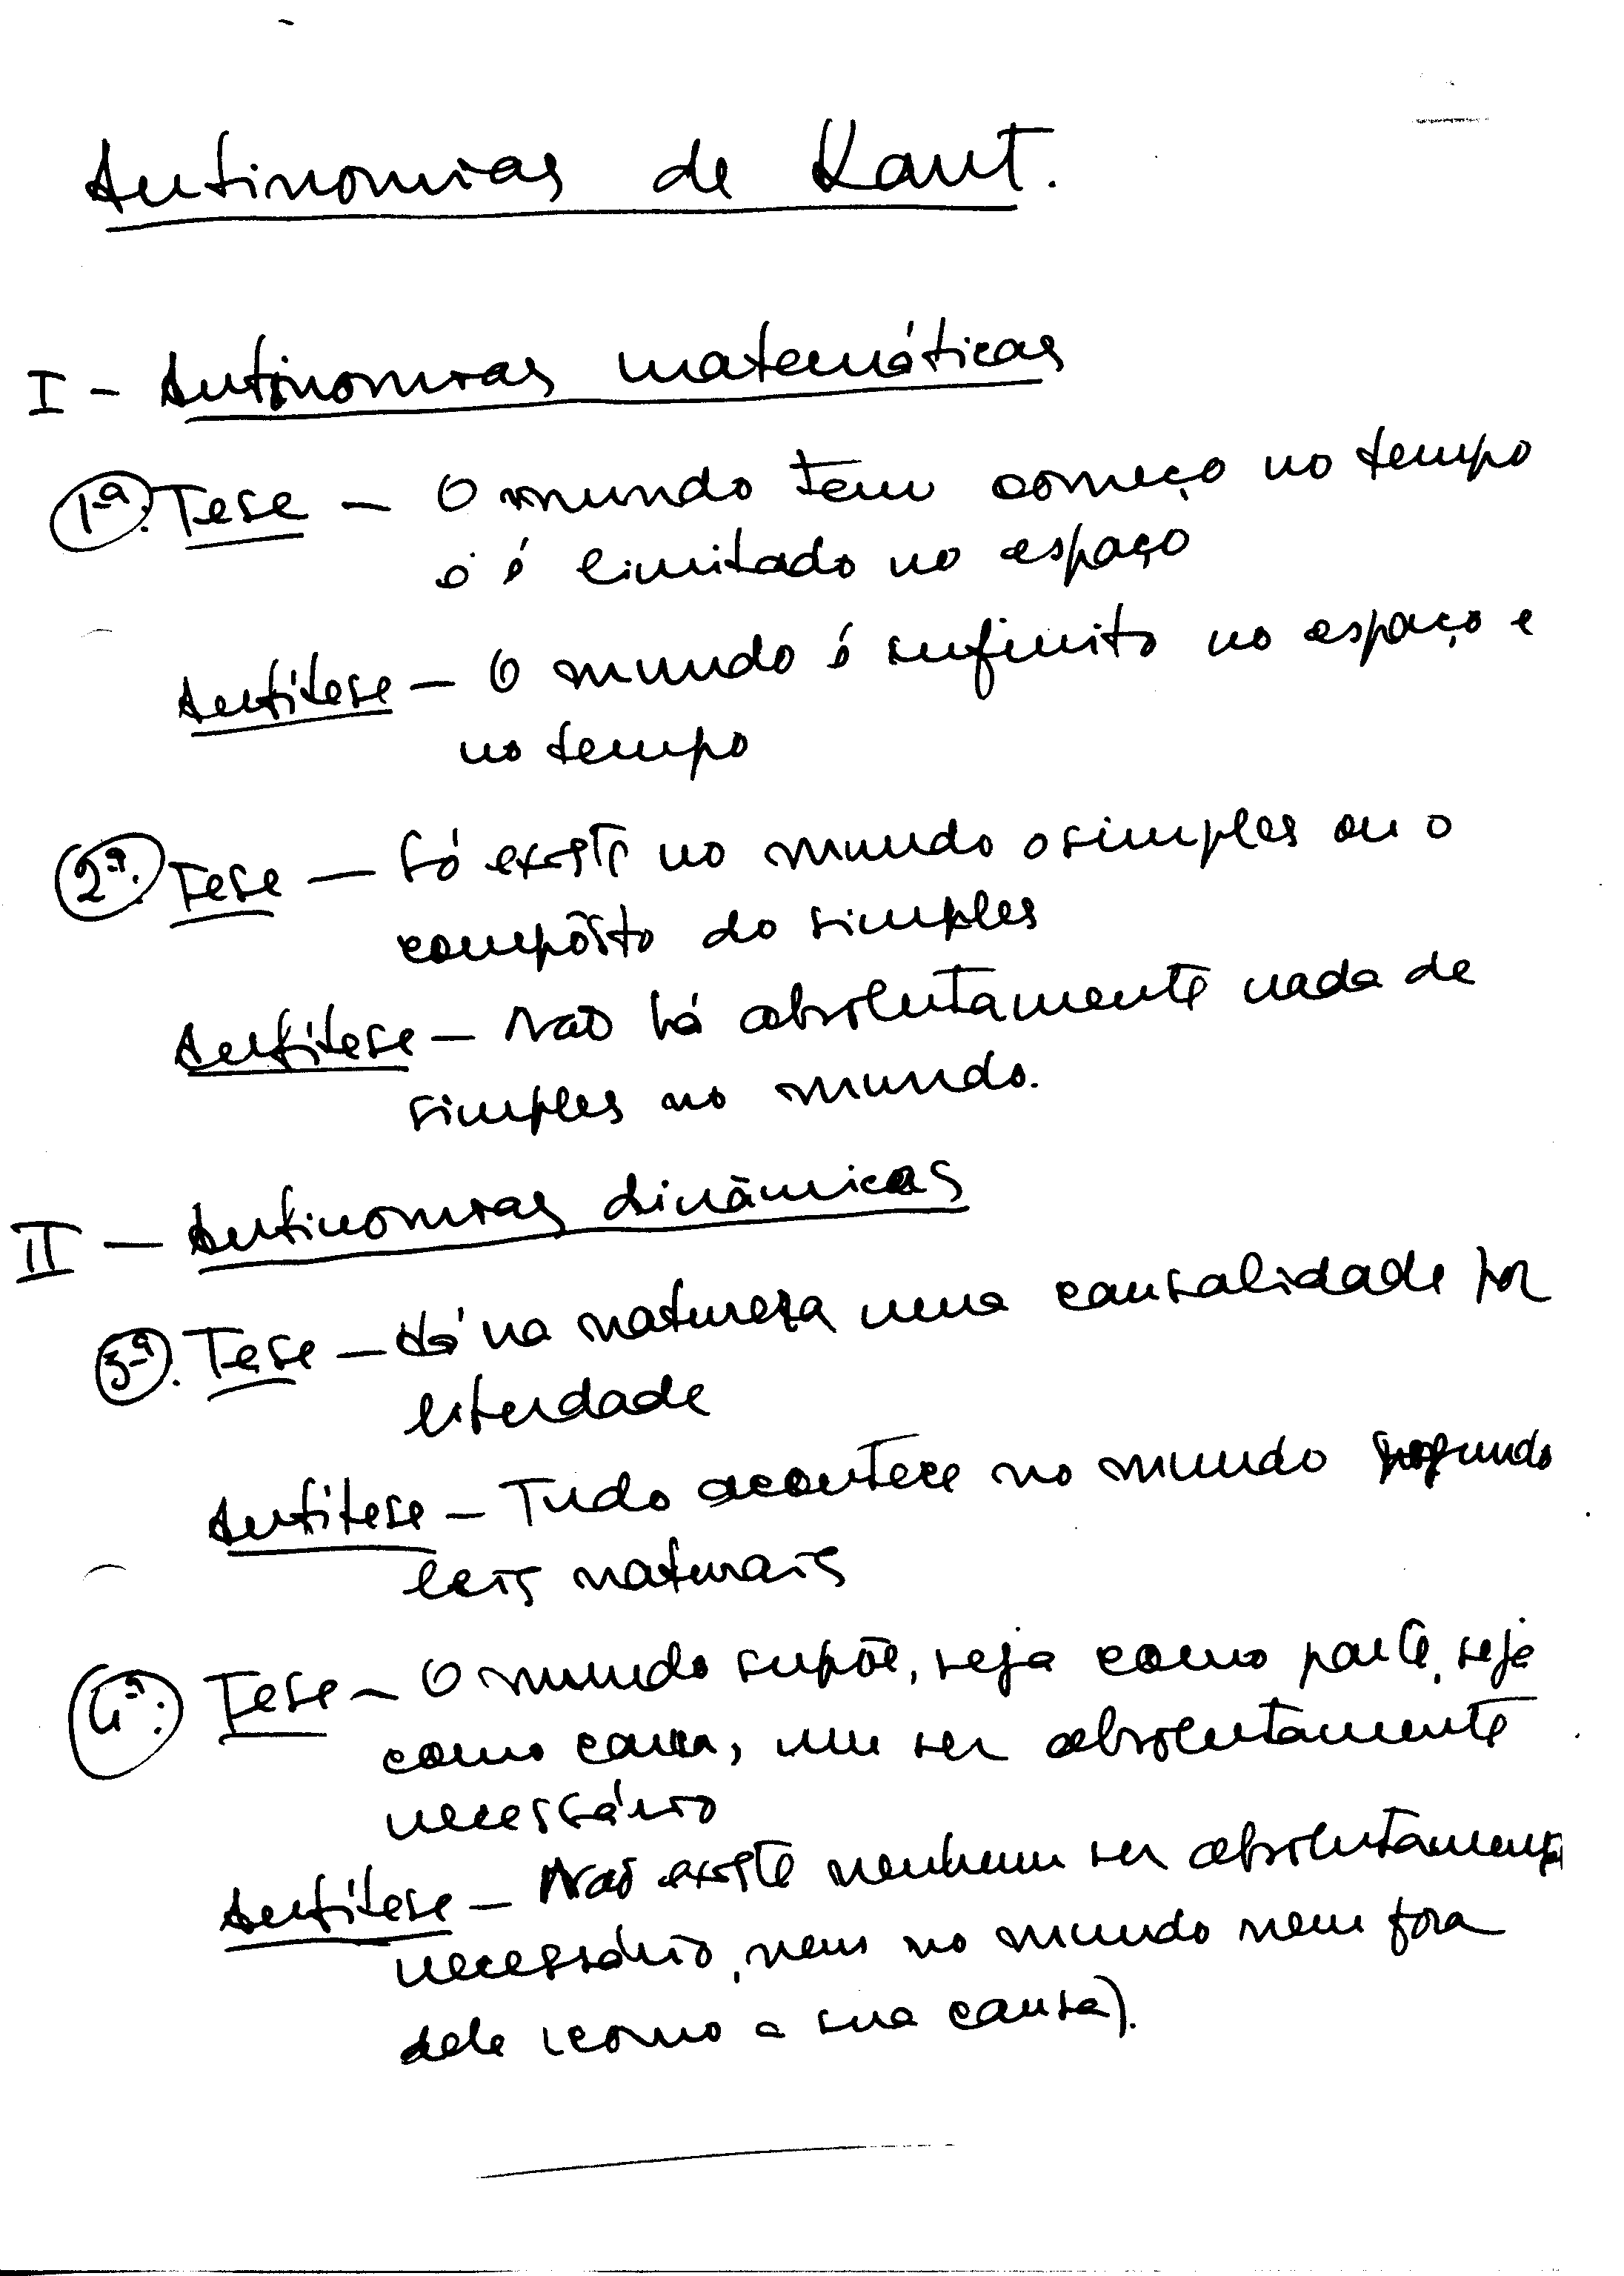 Antinomias de Kant.
I - Antinomias matemáticas
1ª. Tese - O mundo tem começo no tempo
e é limitado no espaço
Antítese - O mundo é infinito no espaço e
no tempo
2ª. Tese - Só existe no mundo o simples ou o
compôsto do simples
Antítese - Não há absolutamente nada de
simples no mundo.
II - Antinomias dinâmicas
3ª. Tese - Há na natureza uma causalidade por
liberdade
Antítese - Tudo acontece no mundo segundo
leis naturais
4ª. Tese - O mundo supõe, seja como parte, seja
como causa, um ser absolutamente
necessário
Antítese - Não existe nenhum ser absolutamente
necessário, nem no mundo nem fora
dele (como a sua causa).